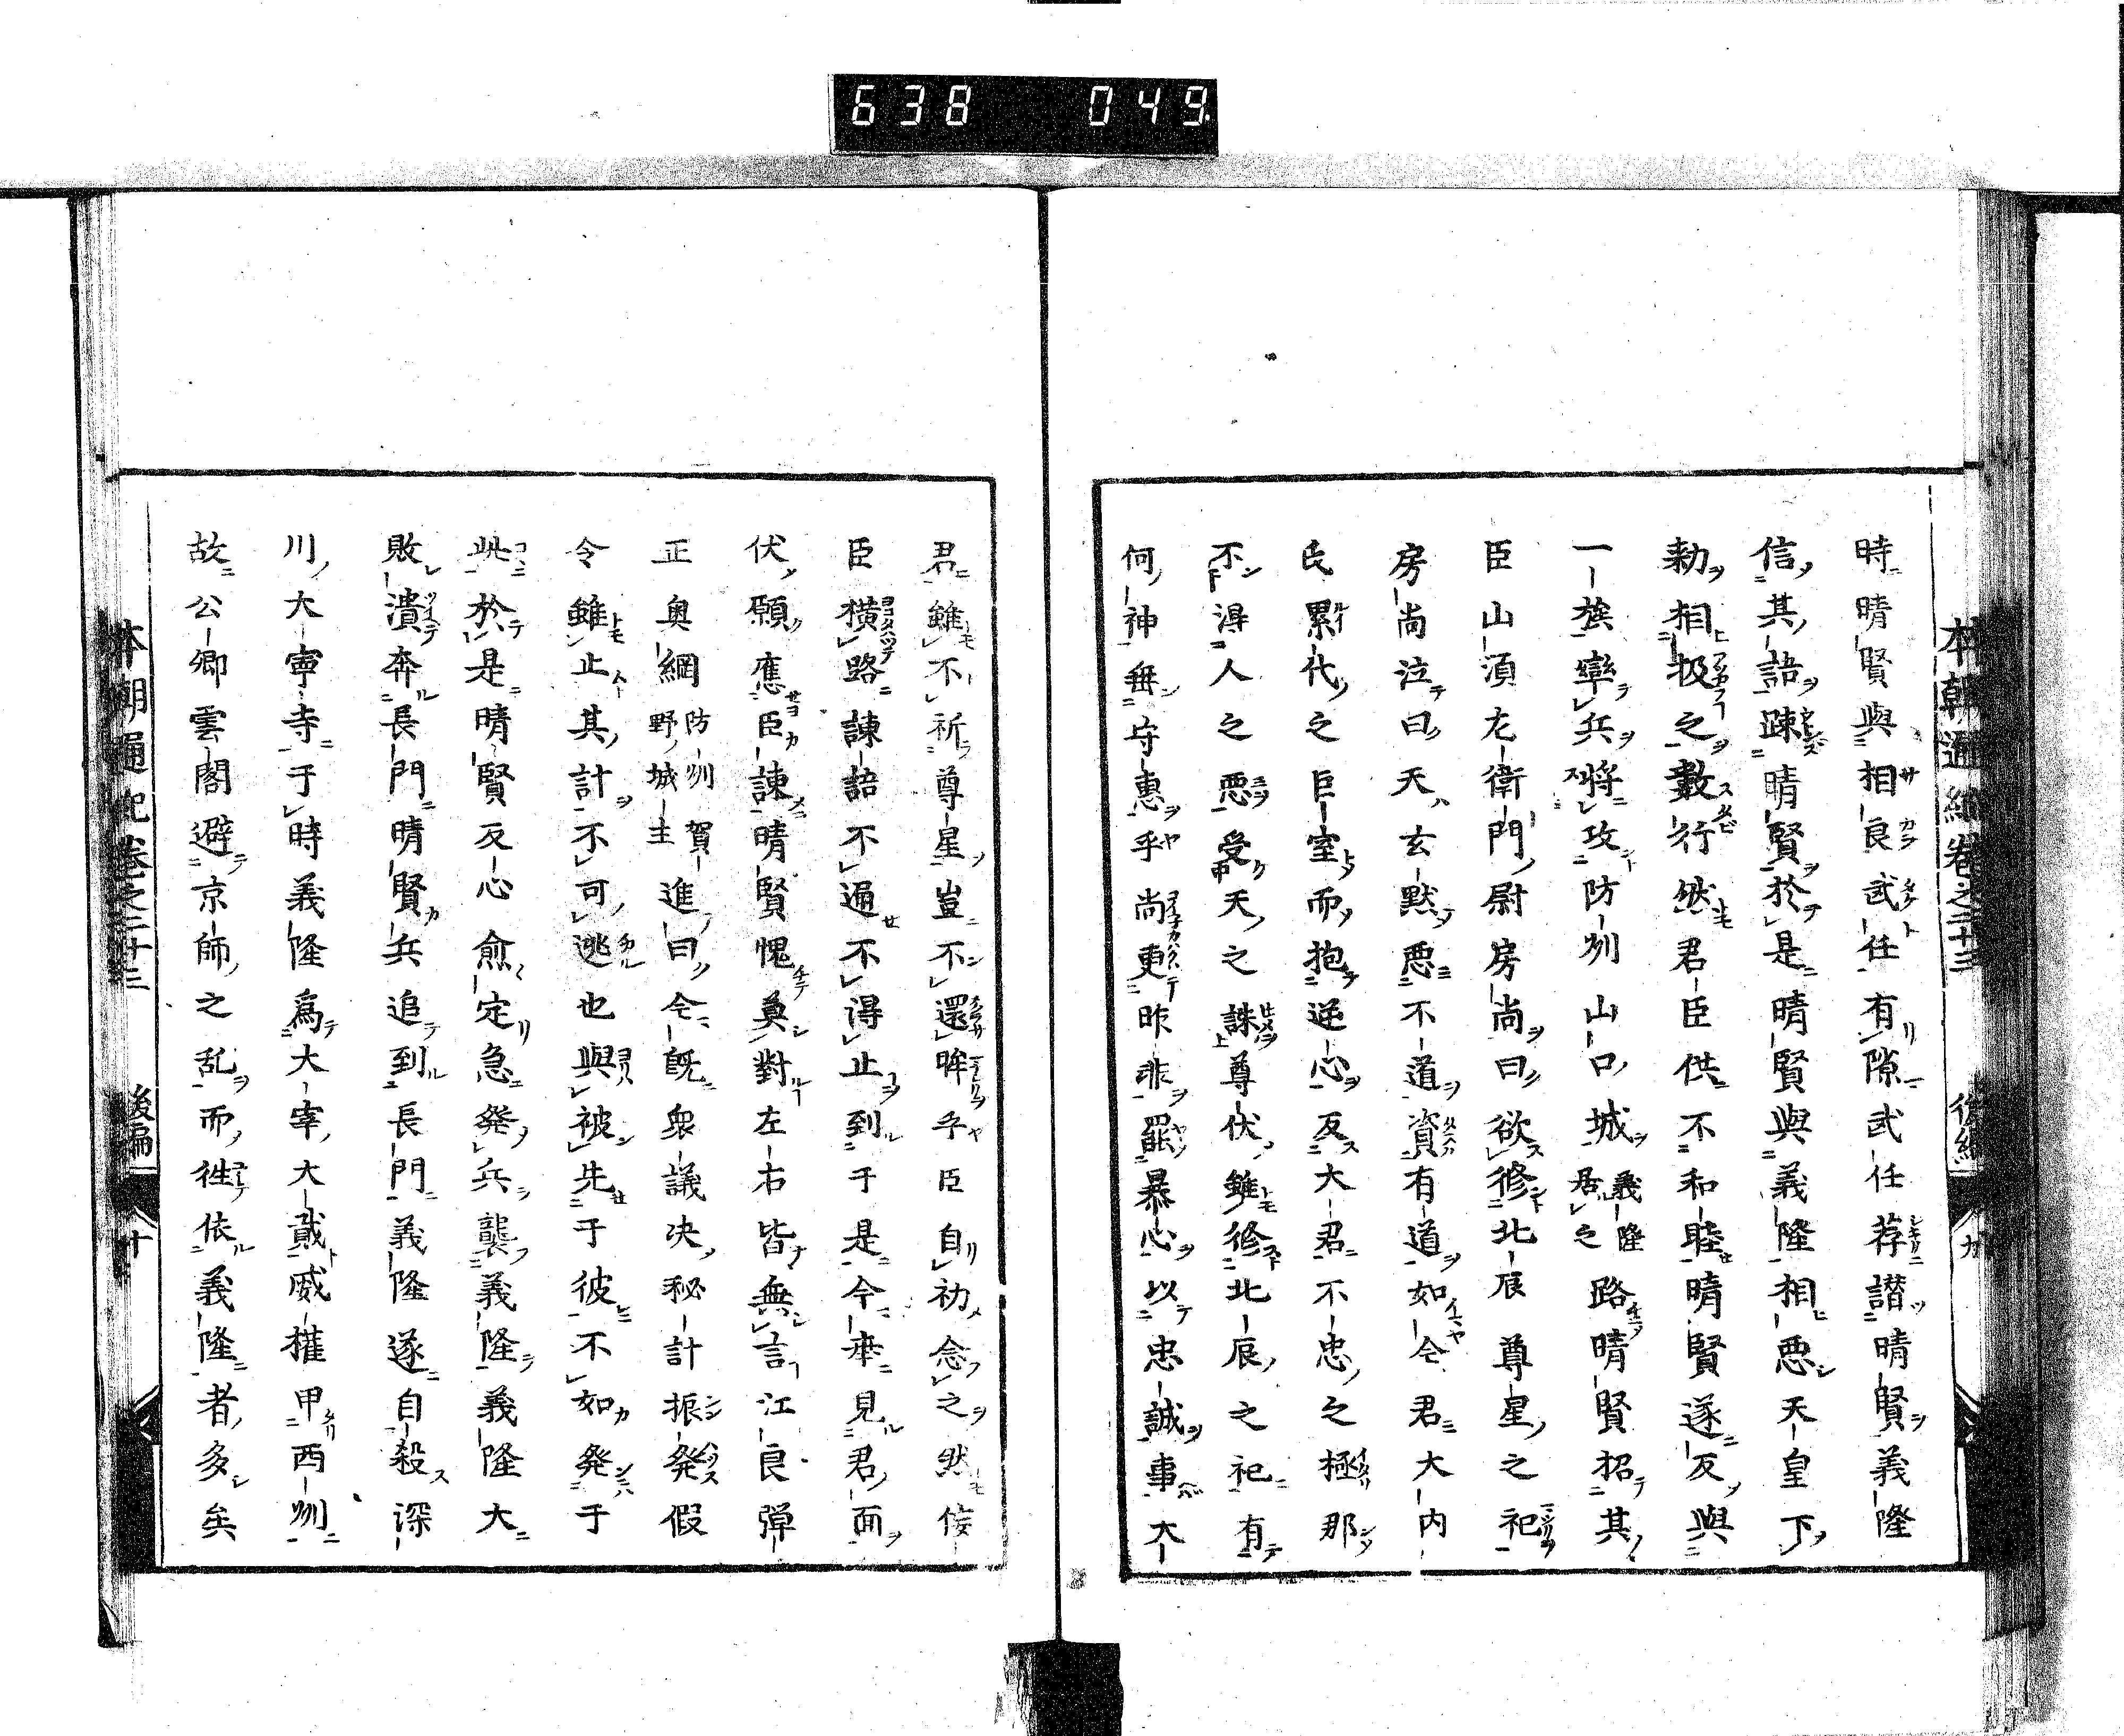 638 049
本朝通紀卷之二十三 後編 九
時晴賢與相良武任有隙武任荐譖晴賢義隆
信其語疎晴賢於是晴賢與義隆相惡天皇下
勅相扱之數行然君臣供不和睦晴賢遂反與
一族率兵將攻防州山口城義隆居之路晴賢招其
臣山須左衛門尉房尚曰欲修北辰尊星之祀
房尚泣曰天玄默惡不道資有道如今君大内
氏累代之臣室而抱逆心反大君不忠之極那
不得人之惡受天之誅尊伏雖修北辰之祀有
何神無守惠乎尚更昨非罷暴心以忠誠事大
君雖不祈尊星豈不還眸乎臣自初念之然佞
臣橫路諫語不通不得止到于是今來見君面
伏願應臣諫晴賢愧奠對左右皆無言江良彈
正奧綱防州賀野城主進曰今既衆議決秘計振発假
令雖止其計不可逃也與被先于彼不如発于
此於是晴賢反心愈定急発兵襲義隆義隆大
敗潰奔長門晴賢兵追到長門義隆遂自殺深
川大寧寺于時義隆爲大宰大貳威權甲西州
故公卿雲閣避京師之乱而往依義隆者多矣
本朝通紀卷之二十三 後編 十